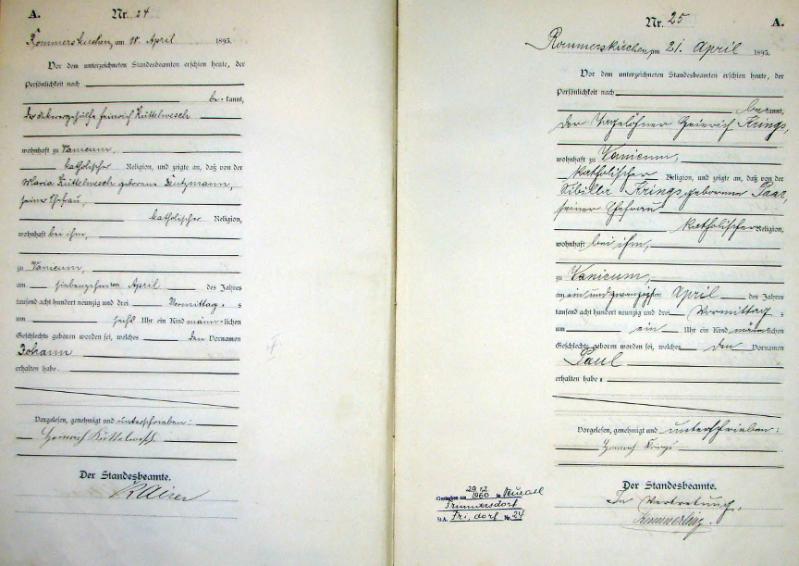 A.
Nr. 24
Rommerskirchen, am 18. April 1893.
Vor dem unterzeichneten Standesbeamten erschien heute, der
Persönlichkeit nach
be kannt,
der Ackergehülfe Heinrich Küttelwesch
wohnhaft zu Vanicum,
katholischer Religion, und zeigte an, daß von der
Maria Küttelwesch geborene
seiner Ehefrau,
katholischer Religion,
wohnhaft bei ihm,
zu Vanicum,
am siebenzehnten April des Jahres
tausend acht hundert neunzig und drei Vormittags
um sechs Uhr ein Kind männlichen
Geschlechts geboren worden sei, welches den Vornamen
Johann
erhalten habe.
Vorgelesen, genehmigt und unterschrieben:
Heinrich Küttelwesch
Der Standesbeamte.
Nr. 25
A.
Rommerskirchen, am 21. April 1893.
Vor dem unterzeichneten Standesbeamten erschien heute, der
Persönlichkeit nach
bekannt,
der Tagelöhner Heinrich Krings,
wohnhaft zu Vanicum,
katholischer Religion, und zeigte an, daß von der
Sibilla Krings, geborene Paas,
seiner Ehefrau
katholischer Religion,
wohnhaft bei ihm,
zu Vanicum,
am ein und zwanzigsten April des Jahres
tausend acht hundert neunzig und drei Vormittags
um ein Uhr ein Kind männlichen
Geschlechts geboren worden sei, welches den Vornamen
Paul
erhalten habe.
Vorgelesen, genehmigt und unterschrieben:
Heinrich Krings
Der Standesbeamte.
In Vertretung.
Gestorben am 29.12 1960 in
Frimmersdorf
Fri. dorf Nr. 24